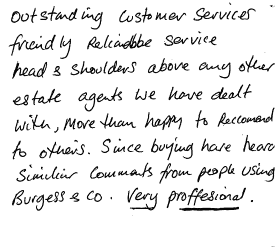 outstanding customer services
friendly Reliable service
head & shoulders above any other
estate agents we have dealt
with, More than happy to Reccomend
to others. Since buying have heard
Similiar Comments from people using
Burgess & co. Very proffesional.